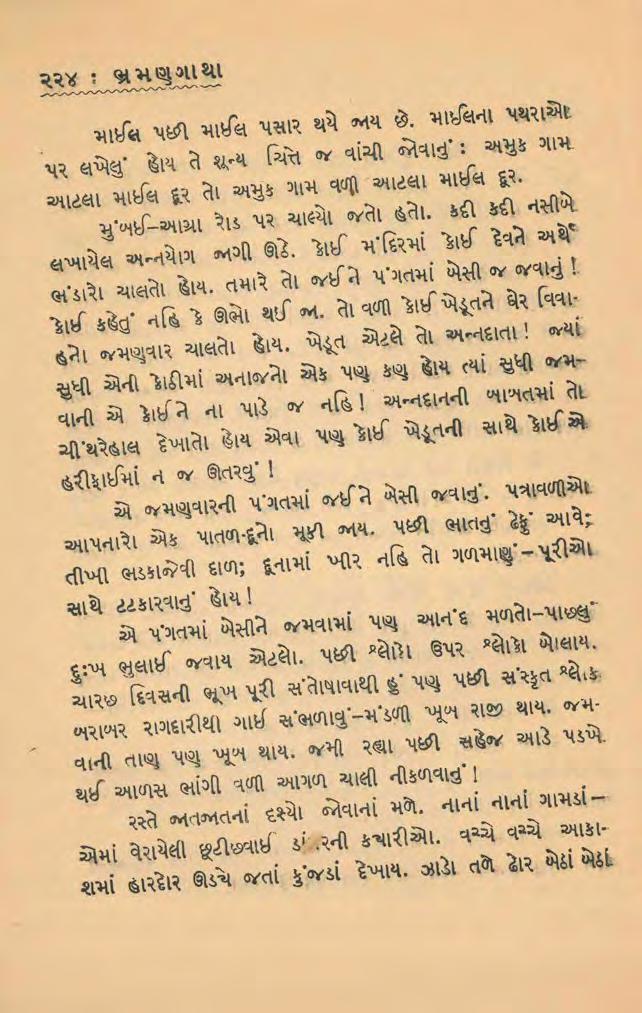 ૨૨૪ : ભ્રમણગાથા
માઈલ પછી માઈલ પસાર થયે જાય છે. માઈલના પથરાઓ
પર લખેલું હોય તે શૂન્ય ચિત્તે જ વાંચી જોવાનું : અમુક ગામ
આટલા માઈલ દૂર તો અમુક ગામ વળી આટલા માઈલ દૂર.
મુંબઈ–આગ્રા રોડ પર ચાલ્યો જતો હતો. કદી કદી નસીબે
લખાયેલ અન્નયોગ જાગી ઊઠે. કોઈ મંદિરમાં કોઈ દેવને અર્થે
ભંડારો ચાલતો હોય. તમારે તો જઈને પંગતમાં બેસી જ જવાનું !
કોઈ કહેતું નહિ કે ઊભો થઈ જા. તો વળી કોઈ ખેડૂતને ઘેર વિવા-
હનો જમણવાર ચાલતો હોય. ખેડૂત એટલે તો અન્નદાતા ! જ્યાં
સુધી એની કોઠીમાં અનાજનો એક પણ કણ હોય ત્યાં સુધી જમ–
વાની એ કોઈને ના પાડે જ નહિ ! અન્નદાનની બાબતમાં તો
ચીંથરેહાલ દેખાતો હોય એવા પણ કોઈ ખેડૂતની સાથે કોઈએ
હરીફાઈમાં ન જ ઊતરવું !
એ જમણવારની પંગતમાં જઈને બેસી જવાનું. પત્રાવળીઓ
આપનારો એક પાતળ-દૂનો મૂકી જાય. પછી ભાતનું ઢેફું આવે;
તીખી ભડકાજેવી દાળ; દૂનામાં ખીર નહિ તો ગળમાણું–પૂરીઓ
સાથે ટટકારવાનું હોય !
એ પંગતમાં બેસીને જમવામાં પણ આનંદ મળતો–પાછલું
દુઃખ ભુલાઈ જવાય એટલો. પછી શ્લોકો ઉપર શ્લોકો બોલાય.
ચારછ દિવસની ભૂખ પૂરી સંતોષાવાથી હું પણ પછી સંસ્કૃત શ્લોક
બરાબર રાગદારીથી ગાઈ સંભળાવું–મંડળી ખૂબ રાજી થાય. જમ-
વાની તાણ પણ ખૂબ થાય. જમી રહ્યા પછી સહેજ આડે પડખે
થઈ આળસ ભાંગી વળી આગળ ચાલી નીકળવાનું !
રસ્તે જાતજાતનાં દૃશ્યો જોવાનાં મળે. નાનાં નાનાં ગામડાં–
એમાં વેરાયેલી છૂટીછવાઈ ડાંગરની કયારીઓ. વચ્ચે વચ્ચે આકા-
શમાં હારદોર ઊડયે જતાં કુંજડાં દેખાય. ઝાડો તળે ઢોર બેઠાં બેઠાં